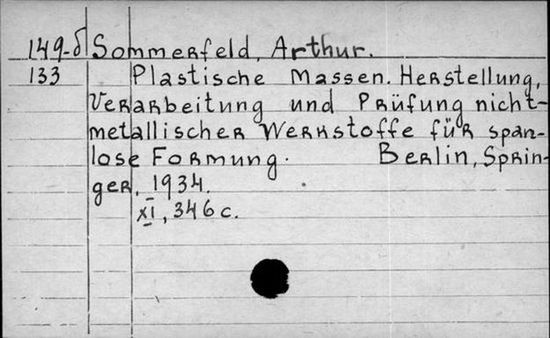 149-δ Sommerfeld, Arthur.
133 Plastische Massen. Herstellung,
Verarbeitung und Prüfung nicht-
metallischer Werkstoffe für span-
lose Formung. Berlin, Sprin-
ger, 1934.
XI, 346 c.